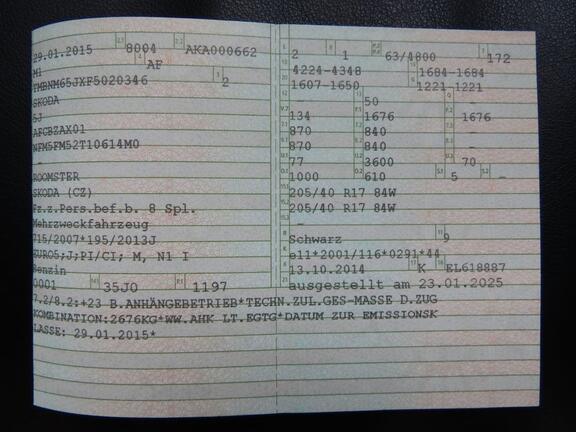 29.01.2015 8004 AKA000662
M1 AF
TMBNM65JXF5020346 2
SKODA
5J
AFCBZAX01
NFM5FM52T10614M0
-
ROOMSTER
SKODA (CZ)
Fz.z.Pers.bef.b. 8 Spl.
Mehrzweckfahrzeug
715/2007*195/2013J
EURO5;J;PI/CI; M, N1 I
Benzin
0001 35J0 1197
2 1 63/4800 172
4224-4348 1684-1684
1607-1650 1221-1221
50 -
134 1676 1676
870 840 -
870 840 -
77 3600 70
1000 610 5 -
205/40 R17 84W
205/40 R17 84W
-
Schwarz 9
e11*2001/116*0291*44
13.10.2014 K EL618887
ausgestellt am 23.01.2025
7.2/8.2:+23 B.ANHÄNGEBETRIEB*TECHN.ZUL.GES-MASSE D.ZUG
KOMBINATION:2676KG*WW.AHK LT.EGTG*DATUM ZUR EMISSIONSK
LASSE: 29.01.2015*